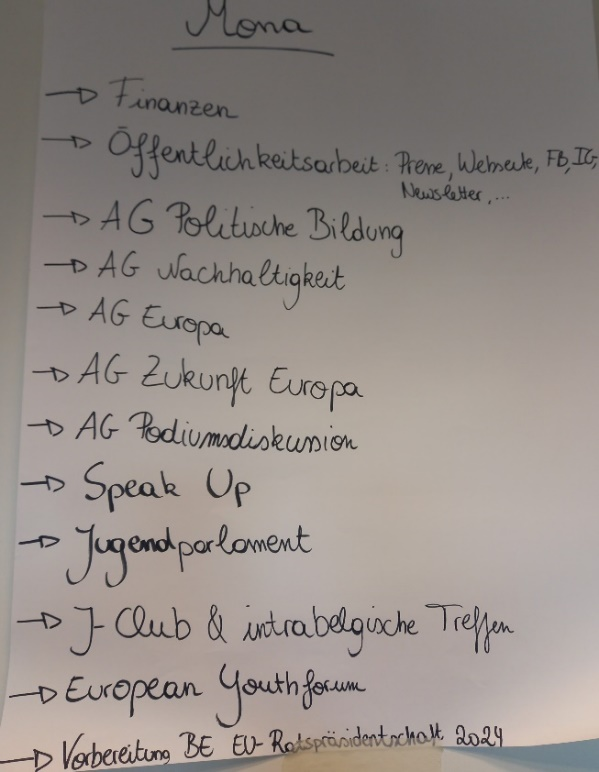 Mona
→ Finanzen
→ Öffentlichkeitsarbeit: Presse, Webseite, FB, IG,
Newsletter, ...
→ AG Politische Bildung
→ AG Nachhaltigkeit
→ AG Europa
→ AG Zukunft Europa
→ AG Podiumsdiskussion
→ Speak Up
→ Jugendparlament
→ J-Club & intrabelgische Treffen
→ European Youthforum
→ Vorbereitung BE EU-Ratspräsidentschaft 2024